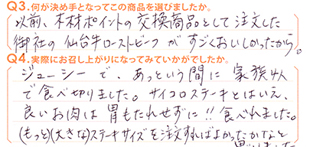 Q3.何が決め手となってこの商品を選びましたか。
以前、木材ポイントの交換商品として注文した
御社の仙台牛ローストビーフがすごくおいしかったから。
Q4.実際にお召し上がりになってみていかがでしたか。
ジューシーで、あっという間に家族4人
で食べ切りました。サイコロステーキとはいえ、
良いお肉は胃もたれせずに!!食べれました。
(もっと)(大きな)ステーキサイズを注文すればよかったかなと